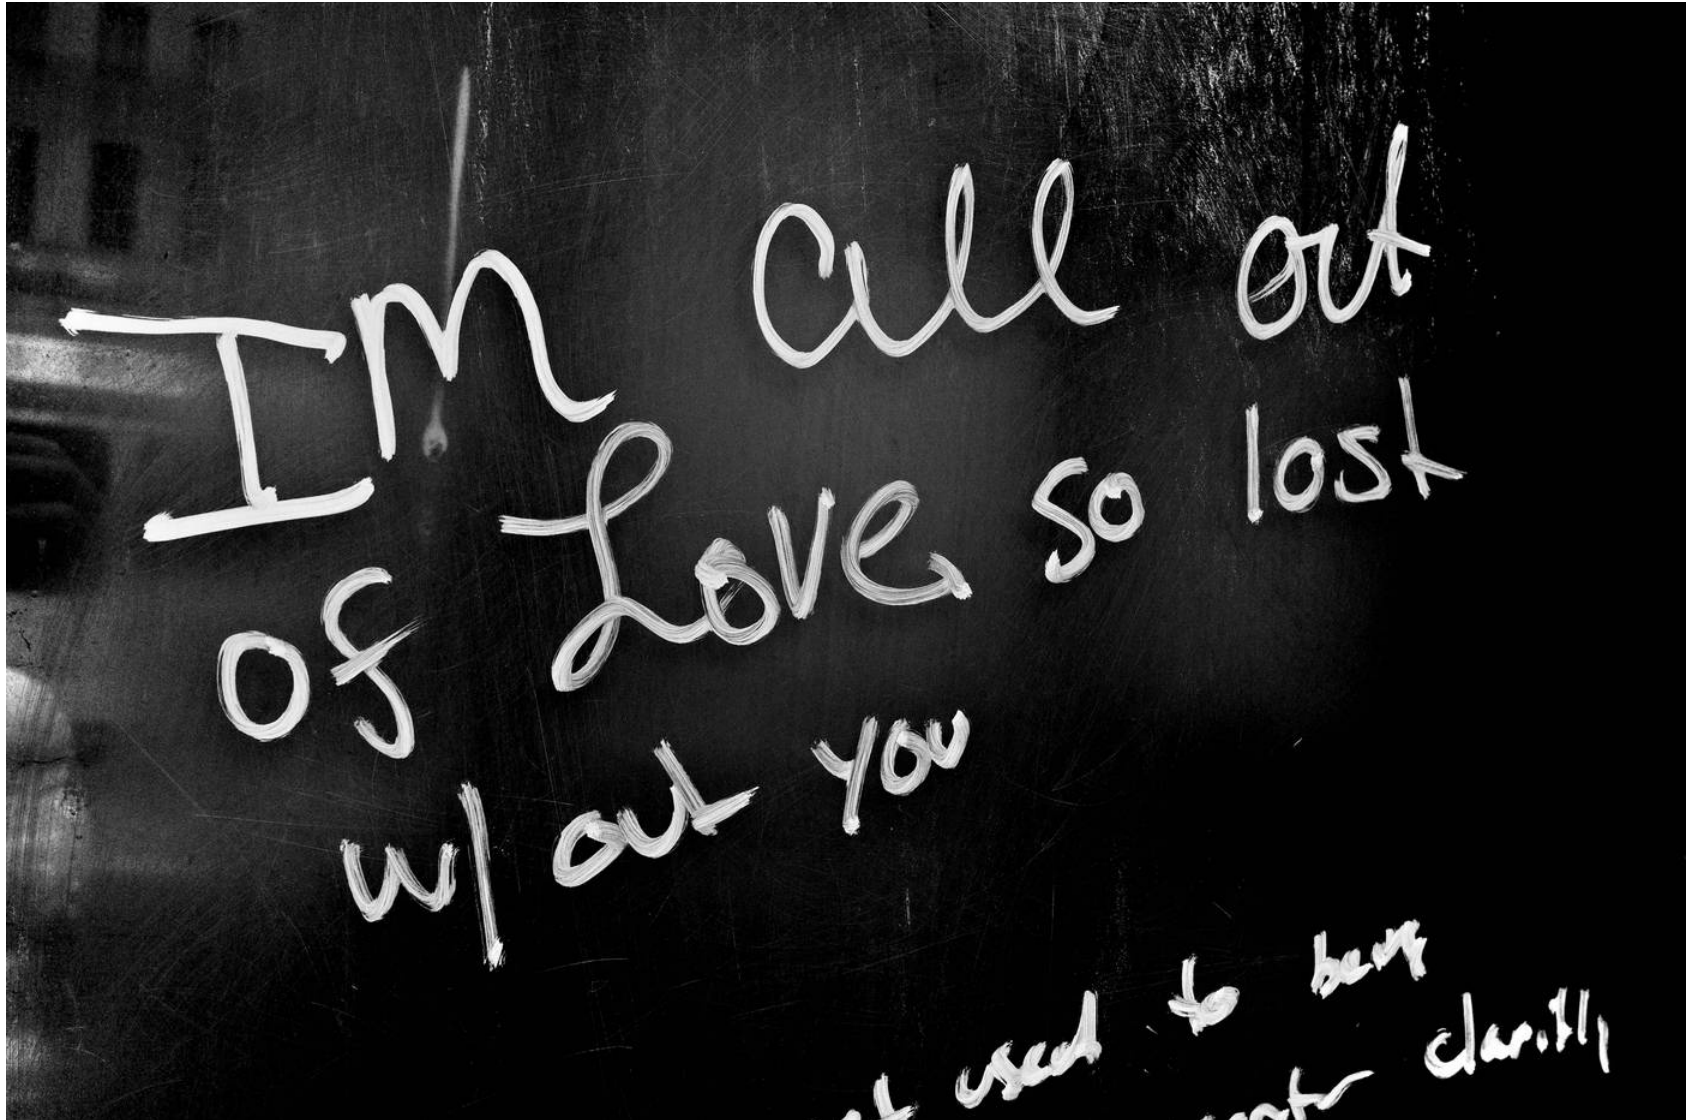 Im all out
of Love so lost
w/out you
used to being
clarity